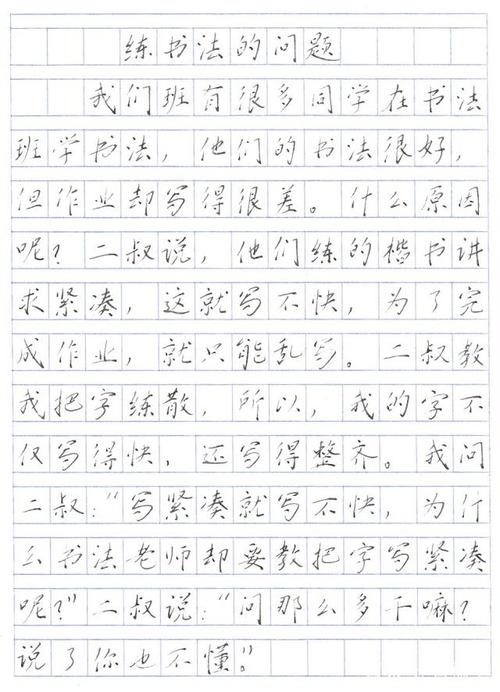 练书法的问题
我们班有很多同学在书法
班学书法，他们的书法很好，
但作业却写得很差。什么原因
呢？二叔说，他们练的楷书讲
求紧凑，这就写不快，为了完
成作业，就只能乱写。二叔教
我把字练散，所以，我的字不
仅写得快，还写得整齐。我问
二叔：“写紧凑就写不快，为什
么书法老师却要教把字写紧凑
呢？”二叔说：“问那么多干嘛？
说了你也不懂”。